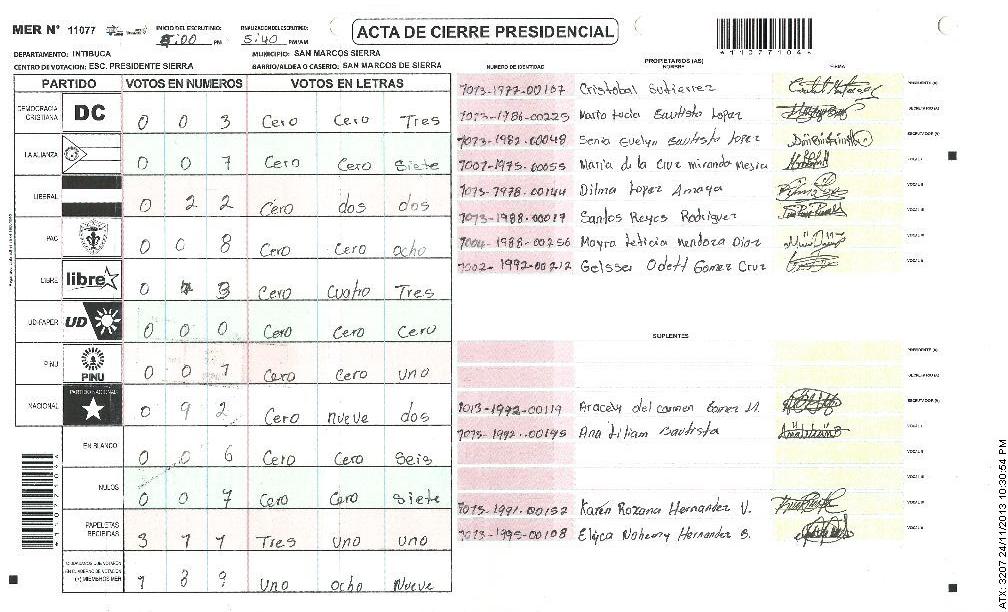 MER N° 11077
INICIO DEL ESCRUTINIO: 5:00 PM
FINALIZACION DEL ESCRUTINIO: 5:40 PM/AM
ACTA DE CIERRE PRESIDENCIAL
*11077104*
DEPARTAMENTO: INTIBUCA
MUNICIPIO: SAN MARCOS SIERRA
CENTRO DE VOTACION: ESC. PRESIDENTE SIERRA
BARRIO/ALDEA O CASERIO: SAN MARCOS DE SIERRA
PARTIDO VOTOS EN NUMEROS VOTOS EN LETRAS
DEMOCRACIA CRISTIANA DC 0 0 3 Cero Cero Tres
LA ALIANZA 0 0 7 Cero Cero Siete
LIBERAL 0 2 2 Cero dos dos
PAC 0 0 8 Cero Cero ocho
LIBRE libre 0 4 3 Cero Cuatro Tres
UD-FAPER UD 0 0 0 Cero Cero Cero
PINU PINU 0 0 1 Cero Cero uno
NACIONAL PARTIDO NACIONAL 0 9 2 Cero nueve dos
EN BLANCO 0 0 6 Cero Cero Seis
NULOS 0 0 7 Cero Cero Siete
PAPELETAS RECIBIDAS 3 1 1 Tres uno uno
CIUDADANOS QUE VOTARON EN CUADERNO DE VOTACION (+) MIEMBROS MER 1 8 9 Uno ocho Nueve
PROPIETARIOS (AS)
NUMERO DE IDENTIDAD NOMBRE FIRMA
1013-1977-00167 Cristobal Gutierrez PRESIDENTE (A)
1013-1986-00225 Maria Lucia Bautista Lopez SECRETARIO (A)
1013-1982-00048 Sonia Suelyn Bautista Lopez ESCRUTADOR (A)
1007-1975-00055 Maria de la Cruz miranda Mejia VOCAL I
1013-1978-00144 Dilma Lopez Amaya VOCAL II
1013-1988-00017 Santos Reyes Rodriguez VOCAL III
1004-1988-00256 Mayra Leticia Mendoza Diaz VOCAL IV
1002-1992-00212 Geisser Odett Gomez Cruz VOCAL V
SUPLENTES
PRESIDENTE (A)
SECRETARIO (A)
1013-1992-00119 Aracely del carmen Gomez M. ESCRUTADOR (A)
1013-1992-00195 Ana Liliam Bautista VOCAL I
VOCAL II
VOCAL III
1013-1991-00152 Karen Rozana Hernandez V. VOCAL IV
1013-1995-00108 Elyca Nohemy Hernandez B. VOCAL V
ATX: 3207 24/11/2013 10:30:54 PM